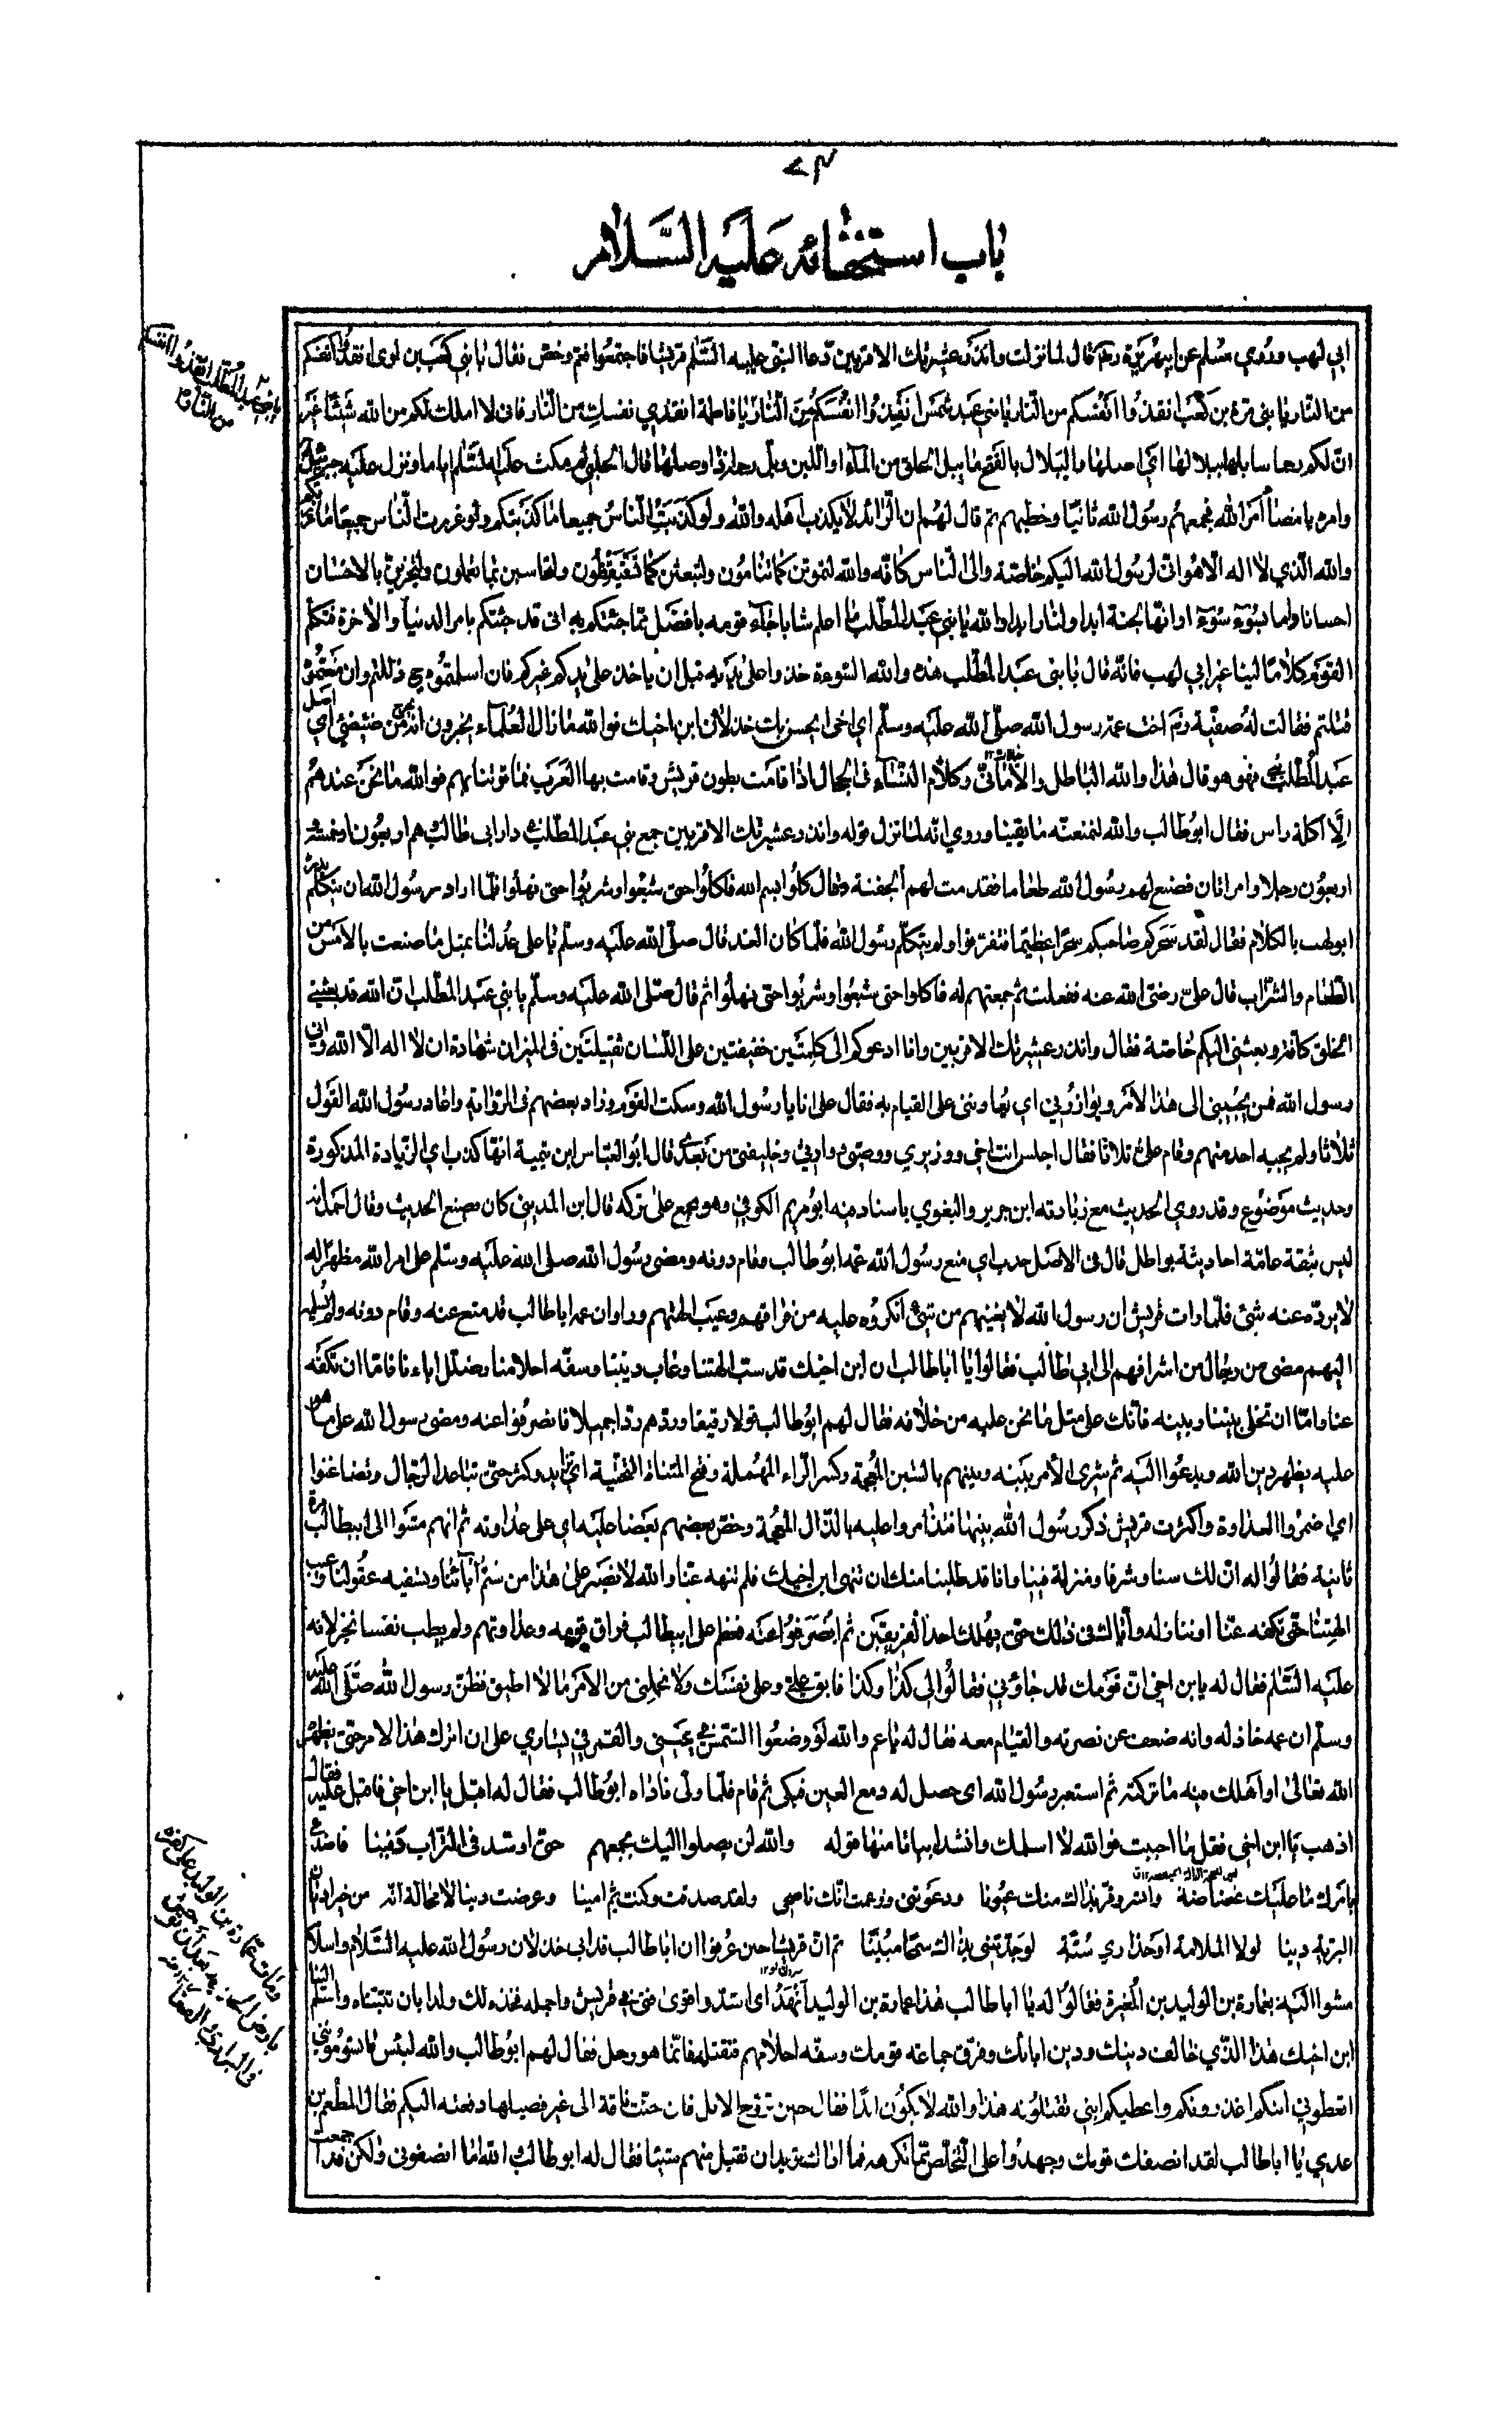 ٧٣
باب استخفائه عليه السلام
ابي لهب وروي مسلم عن ابي هريرة رضه قال لما نزلت وانذر عشيرتك الاقربين دعا النبي عليه السلام قريشا فاجتمعوا فعم وخص فقال يا بني كعب بن لوى انقذوا انفسكم
من النار يا بني مرة بن كعب انقذوا انفسكم من النار يا بني عبد شمس انقذوا انفسكم من النار يا فاطمة انقذي نفسك من النار فاني لا املك لكم من الله شيئا غير
ان لكم رحما سابلها ببلالها اي اصلها والبلال بالفتح ما يبل الحلق من الماء او اللبن وبل رحمه اذا وصلها قال الحلبي ثم مكث عليه السلام اياما ونزل عليه جبرئيل
وامره بامضاء امر الله فجمعهم رسول الله ثانيا وخطبهم ثم قال لهم ان الرائد لا يكذب اهله والله ولو كذبت الناس جميعا ما كذبتكم ولو غررت الناس جميعا ما غررتكم
والله الذي لا اله الا هو اني لرسول الله اليكم خاصة والى الناس كافة والله لتموتن كما تنامون ولتبعثن كما تستيقظون ولتحاسبن بما تعملون ولتجزين بالاحسان
احسانا ولها بالسوء سوء او انها لجنة ابدا ولنار ابدا والله يا بني عبد المطلب ما اعلم شابا جاء قومه بافضل مما جئتكم به اني قد جئتكم بامر الدنيا والاخرة فتكلم
القوم كلاما لينا غير ابي لهب فانه قال يا بني عبد المطلب هذه والله السوءة خذوا على يديه قبل ان ياخذ على يديكم غيركم فان اسلمتموه ح ذللتم وان منعتموه
قتلتم فقالت له صفية رضه اخت عمة رسول الله صلى الله عليه وسلم اي اخي ايحسن بك خذلان ابن اخيك فوالله ما زال العلماء يخبرون انه يخرج من ضئضئ اي اصل
عبد المطلب نبي فهو هو قال هذا والله الباطل والاماني وكلام النساء في الحجال اذا قامت بطون قريش وقامت بها العرب فما قوتنا بهم فوالله ما نحن عندهم
الا اكلة راس فقال ابو طالب والله لنمنعنه ما بقينا وروي انه لما نزل قوله وانذر عشيرتك الاقربين جمع بني عبد المطلب في دار ابي طالب وهم اربعون او خمسة
اربعون رجلا وامراتان فصنع لهم رسول الله طعاما فقدمت لهم الجفنة وقال كلوا بسم الله فاكلوا حتى شبعوا وشربوا حتى نهلوا فلما اراد رسول الله ان يتكلم بدره
ابو لهب بالكلام فقال لقد سحركم صاحبكم سحرا عظيما فتفرقوا ولم يتكلم رسول الله فلما كان الغد قال صلى الله عليه وسلم يا علي عد لنا بمثل ما صنعت بالامس من
الطعام والشراب قال علي رضي الله عنه ففعلت ثم جمعتهم له فاكلوا حتى شبعوا وشربوا حتى نهلوا ثم قال صلى الله عليه وسلم يا بني عبد المطلب ان الله قد بعثني
الى الخلق كافة وبعثني اليكم خاصة فقال وانذر عشيرتك الاقربين وانا ادعوكم الى كلمتين خفيفتين على اللسان ثقيلتين في الميزان شهادة ان لا اله الا الله واني
رسول الله فمن يجيبني الى هذا الامر ويوازرني اي يعاونني على القيام به فقال علي انا يا رسول الله وسكت القوم وزاد بعضهم في الرواية واعاد رسول الله القول
ثلاثا ولم يجبه احد منهم وقام علي ثلاثا فقال اجلس انت اخي ووزيري ووصيي ووارثي وخليفتي من بعدي قال ابو العباس ابن تيمية انها كذب اي الزيادة المذكورة
وحديث موضوع وقد روي الحديث مع زيادته ابن جرير والبغوي باسناد فيه ابو مريم الكوفي وهو مجمع على تركه قال ابن المديني كان يصنع الحديث وقال احمد انه
ليس بثقة عامة احاديثه بواطل قال في الاصل حدب اي منع رسول الله عمه ابو طالب وقام دونه ومضى رسول الله صلى الله عليه وسلم على امر الله مظهرا له
لا يرده عنه شئ فلما رات قريش ان رسول الله لا يعتبهم من شئ انكروه عليه من فراقهم وعيب الهتهم وراوا ان عمه ابا طالب قد منع عنه وقام دونه ولم يسلمه
اليهم مضى من رجال من اشرافهم الى ابي طالب فقالوا يا ابا طالب ان ابن اخيك قد سب الهتنا وعاب ديننا وسفه احلامنا وضلل اباءنا فاما ان تكفه
عنا واما ان تخلي بيننا وبينه فانك على مثل ما نحن عليه من خلافه فقال لهم ابو طالب قولا رقيقا وردهم ردا جميلا فانصرفوا عنه ومضى رسول الله على ما هو
عليه يظهر دين الله ويدعوا اليه ثم شرى الامر بينه وبينهم بالشين المعجمة وكسر الراء المهملة وفتح المثناة التحتية اي تزايد وكثر حتى تباعد الرجال وتضاغنوا
اي اضمروا العداوة واكثرت قريش ذكر رسول الله بينها فتذامروا عليه بالذال المعجمة وحض بعضهم بعضا عليه اي على عداوته ثم انهم مشوا الى ابي طالب مرة
ثانية فقالوا له ان لك سنا وشرفا ومنزلة فينا وانا قد طلبنا منك ان تنهى ابن اخيك فلم تنهه عنا وانا والله لا نصبر على هذا من شتم آبائنا وتسفيه عقولنا وعيب
الهتنا حتى تكفه عنا او ننازله واياك في ذلك حتى يهلك احد الفريقين ثم انصرفوا عنه فعظم على ابي طالب فراق قومه وعداوتهم ولم يطب نفسا بخذلانه
عليه السلام فقال له يا بن اخي ان قومك قد جاؤني فقالوا لي كذا وكذا فابق علي وعلى نفسك ولا تحملني من الامر ما لا اطيق فظن رسول الله صلى الله عليه
وسلم ان عمه خاذله وانه ضعف عن نصرته والقيام معه فقال له يا عم والله لو وضعوا الشمس في يميني والقمر في يساري على ان اترك هذا الامر حتى يظهره
الله تعالى او اهلك فيه ما تركته ثم استعبر رسول الله اى حصل له دمع العين فبكى ثم قام فلما ولى ناداه ابو طالب فقال له اقبل يا ابن اخي فاقبل عليه فقال
اذهب يا ابن اخي فقل ما احببت فوالله لا اسلمك وانشد ابياتا منها قوله والله لن يصلوا اليك بجمعهم حتى اوسد في التراب دفينا فاصدع
بامرك ما عليك غضاضة وابشر وقر بذاك منك عيونا ودعوتني وزعمت انك ناصحي ولقد صدقت وكنت ثم امينا وعرضت دينا لا محالة انه من خير اديان
البرية دينا لولا الملامة او حذاري سبة لوجدتني بذاك سمحا مبينا ثم ان قريشا حين عرفوا ان ابا طالب قد ابى خذلان رسول الله عليه السلام واسلامه
مشوا اليه بعمارة بن الوليد بن المغيرة فقالوا له يا ابا طالب هذا عمارة بن الوليد انهد اى اشد واقوى فتى في قريش واجمله فخذه لك ولدا بان تتبناه واسلم الينا
ابن اخيك هذا الذي خالف دينك ودين ابائك وفرق جماعة قومك وسفه احلامهم فنقتله فانما هو رجل فقال لهم ابو طالب والله لبئس ما تسومونني
اتعطوني ابنكم اغذوه لكم واعطيكم ابني تقتلونه هذا والله لا يكون ابدا فقال حين تروح الابل فان حنت ناقة الى غير فصيلها دفعته اليكم فقال المطعم بن
عدي يا ابا طالب لقد انصفك قومك وجهدوا على التخلص مما تكرهه فما اراك تريد ان تقبل منهم شيئا فقال له ابو طالب والله ما انصفوني ولكن قد اجمعت
يا بني عبد المطلب انقذوا انفسكم
من النار
ومات عمارة بن الوليد على كفره